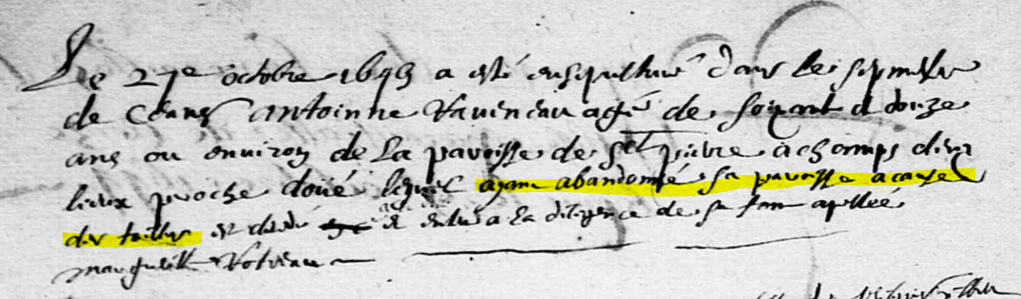 Le 27e octobre 1693 a esté ensepulturé dans le sepmetre
de Ceans antoinne Ravineau agé de soixant et douze
ans ou environ de la paroisse de St pierre a champs deux
lieux proche doué lequel ayant abandonné sa paroisse a cause
des tailles est decedé et enteré a la diligence de sa fem apellée
marguerite